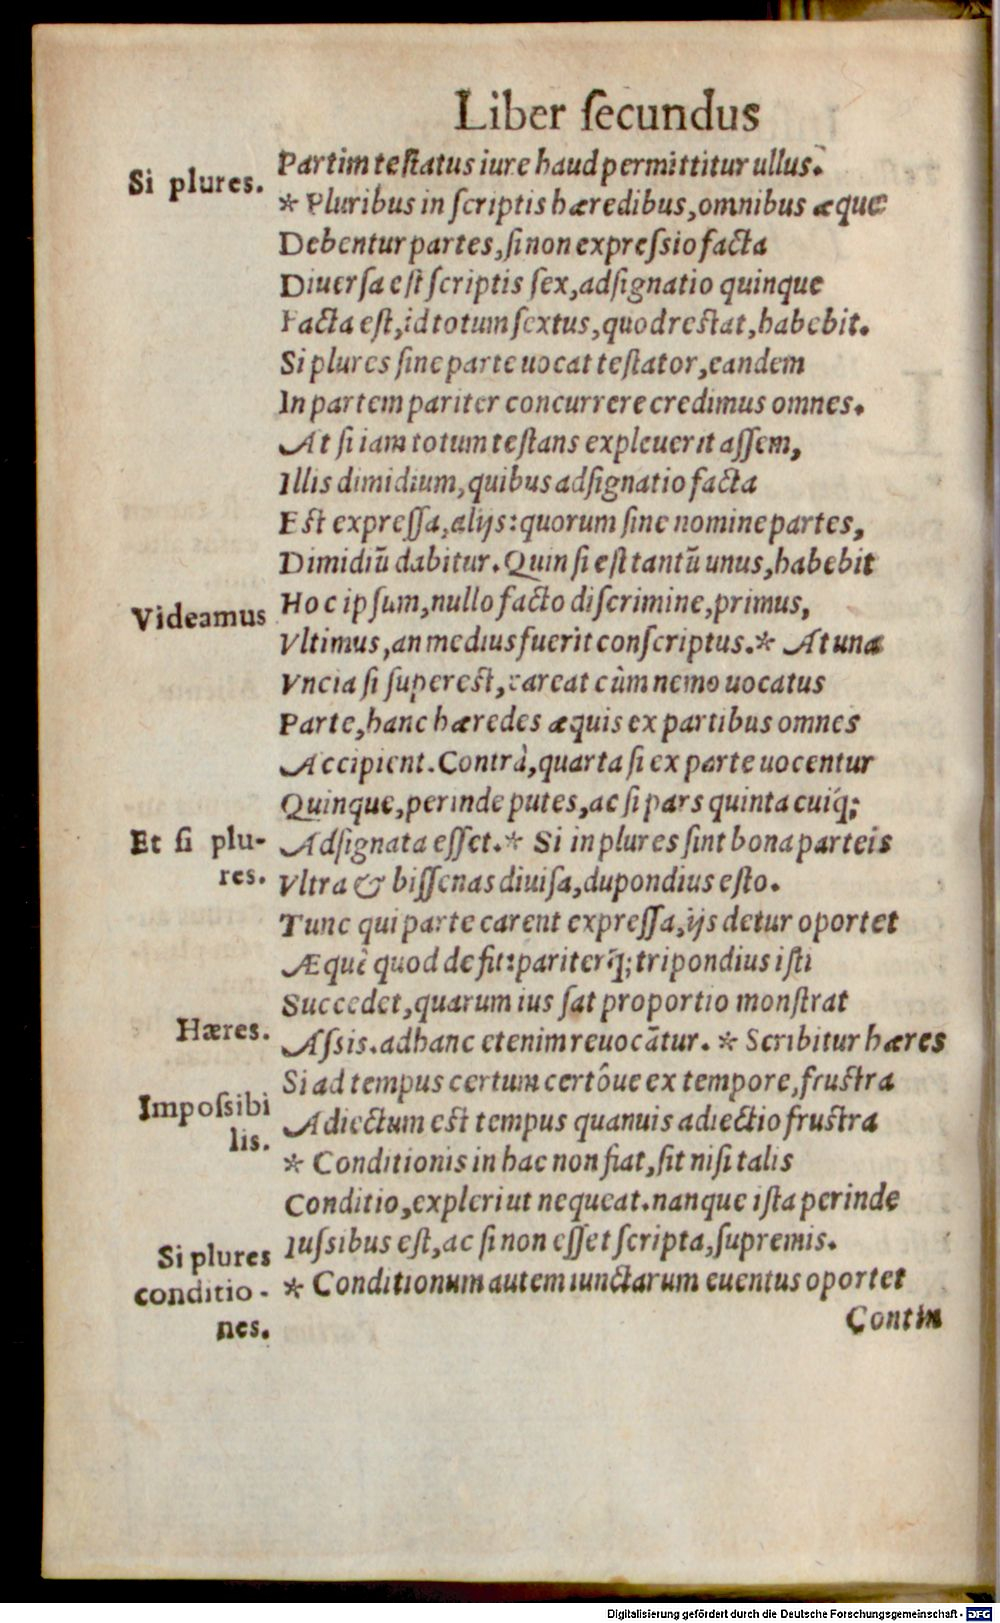 Liber ſecundus
Si plures.
Partim teſtatus iure haud permittitur ullus.
* Pluribus in ſcriptis hæredibus, omnibus æquæ
Debentur partes, ſi non expreſsio facta
Diuerſa eſt ſcriptis ſex, adſignatio quinque
Facta eſt, id totum ſextus, quod reſtat, habebit.
Si plures ſine parte uocat teſtator, eandem
In partem pariter concurrere credimus omnes.
At ſi iam totum teſtans expleuerit aſſem,
Illis dimidium, quibus adſignatio facta
Eſt expreſſa, alijs: quorum ſine nomine partes,
Dimidiū dabitur. Quin ſi eſt tantū unus, habebit
Videamus
Hoc ipſum, nullo facto diſcrimine, primus,
Vltimus, an medius fuerit conſcriptus. * At una
Vncia ſi ſupereſt, careat cùm nemo uocatus
Parte, hanc hæredes æquis ex partibus omnes
Accipient. Contrà, quarta ſi ex parte uocentur
Quinque, perinde putes, ac ſi pars quinta cuiq́;
Et ſi plu-
res.
Adſignata eſſet. * Si in plures ſint bona parteis
Vltra & biſſenas diuiſa, dupondius eſto.
Tunc qui parte carent expreſſa, ijs detur oportet
Æquè quod defit: pariterq́; tripondius iſti
Succedet, quarum ius ſat proportio monſtrat
Hæres.
Aſsis. ad hanc etenim reuocātur. * Scribitur hæres
Si ad tempus certum certóue ex tempore, fruſtra
Impoſsibi
lis.
Adiectum eſt tempus quanuis adiectio fruſtra
* Conditionis in hac non fiat, ſit niſi talis
Conditio, expleri ut nequeat. nanque iſta perinde
Si plures
conditio-
nes.
Iuſsibus eſt, ac ſi non eſſet ſcripta, ſupremis.
* Conditionum autem iunctarum euentus oportet
Contin
Digitalisierung gefördert durch die Deutsche Forschungsgemeinschaft - DFG